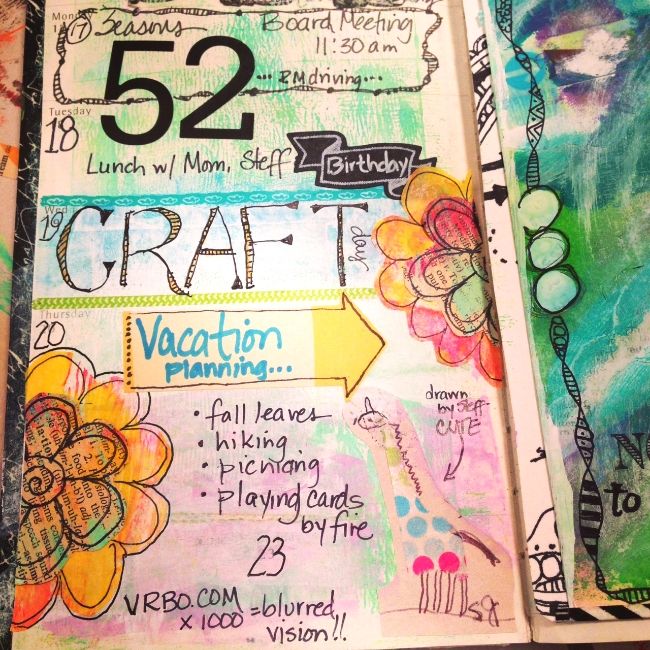 Monday
17
Seasons
Board Meeting
11:30 am
52
... RM driving...
Tuesday
18
Lunch w/ Mom, Steff
Birthday
Wed
19
CRAFT
day
Thursday
20
Vacation
planning...
• fall leaves
• hiking
• picnicing
• playing cards
by fire
drawn
by Steff-
CUTE
23
VRBO.COM
x 1000 = blurred
vision!!
sg
to